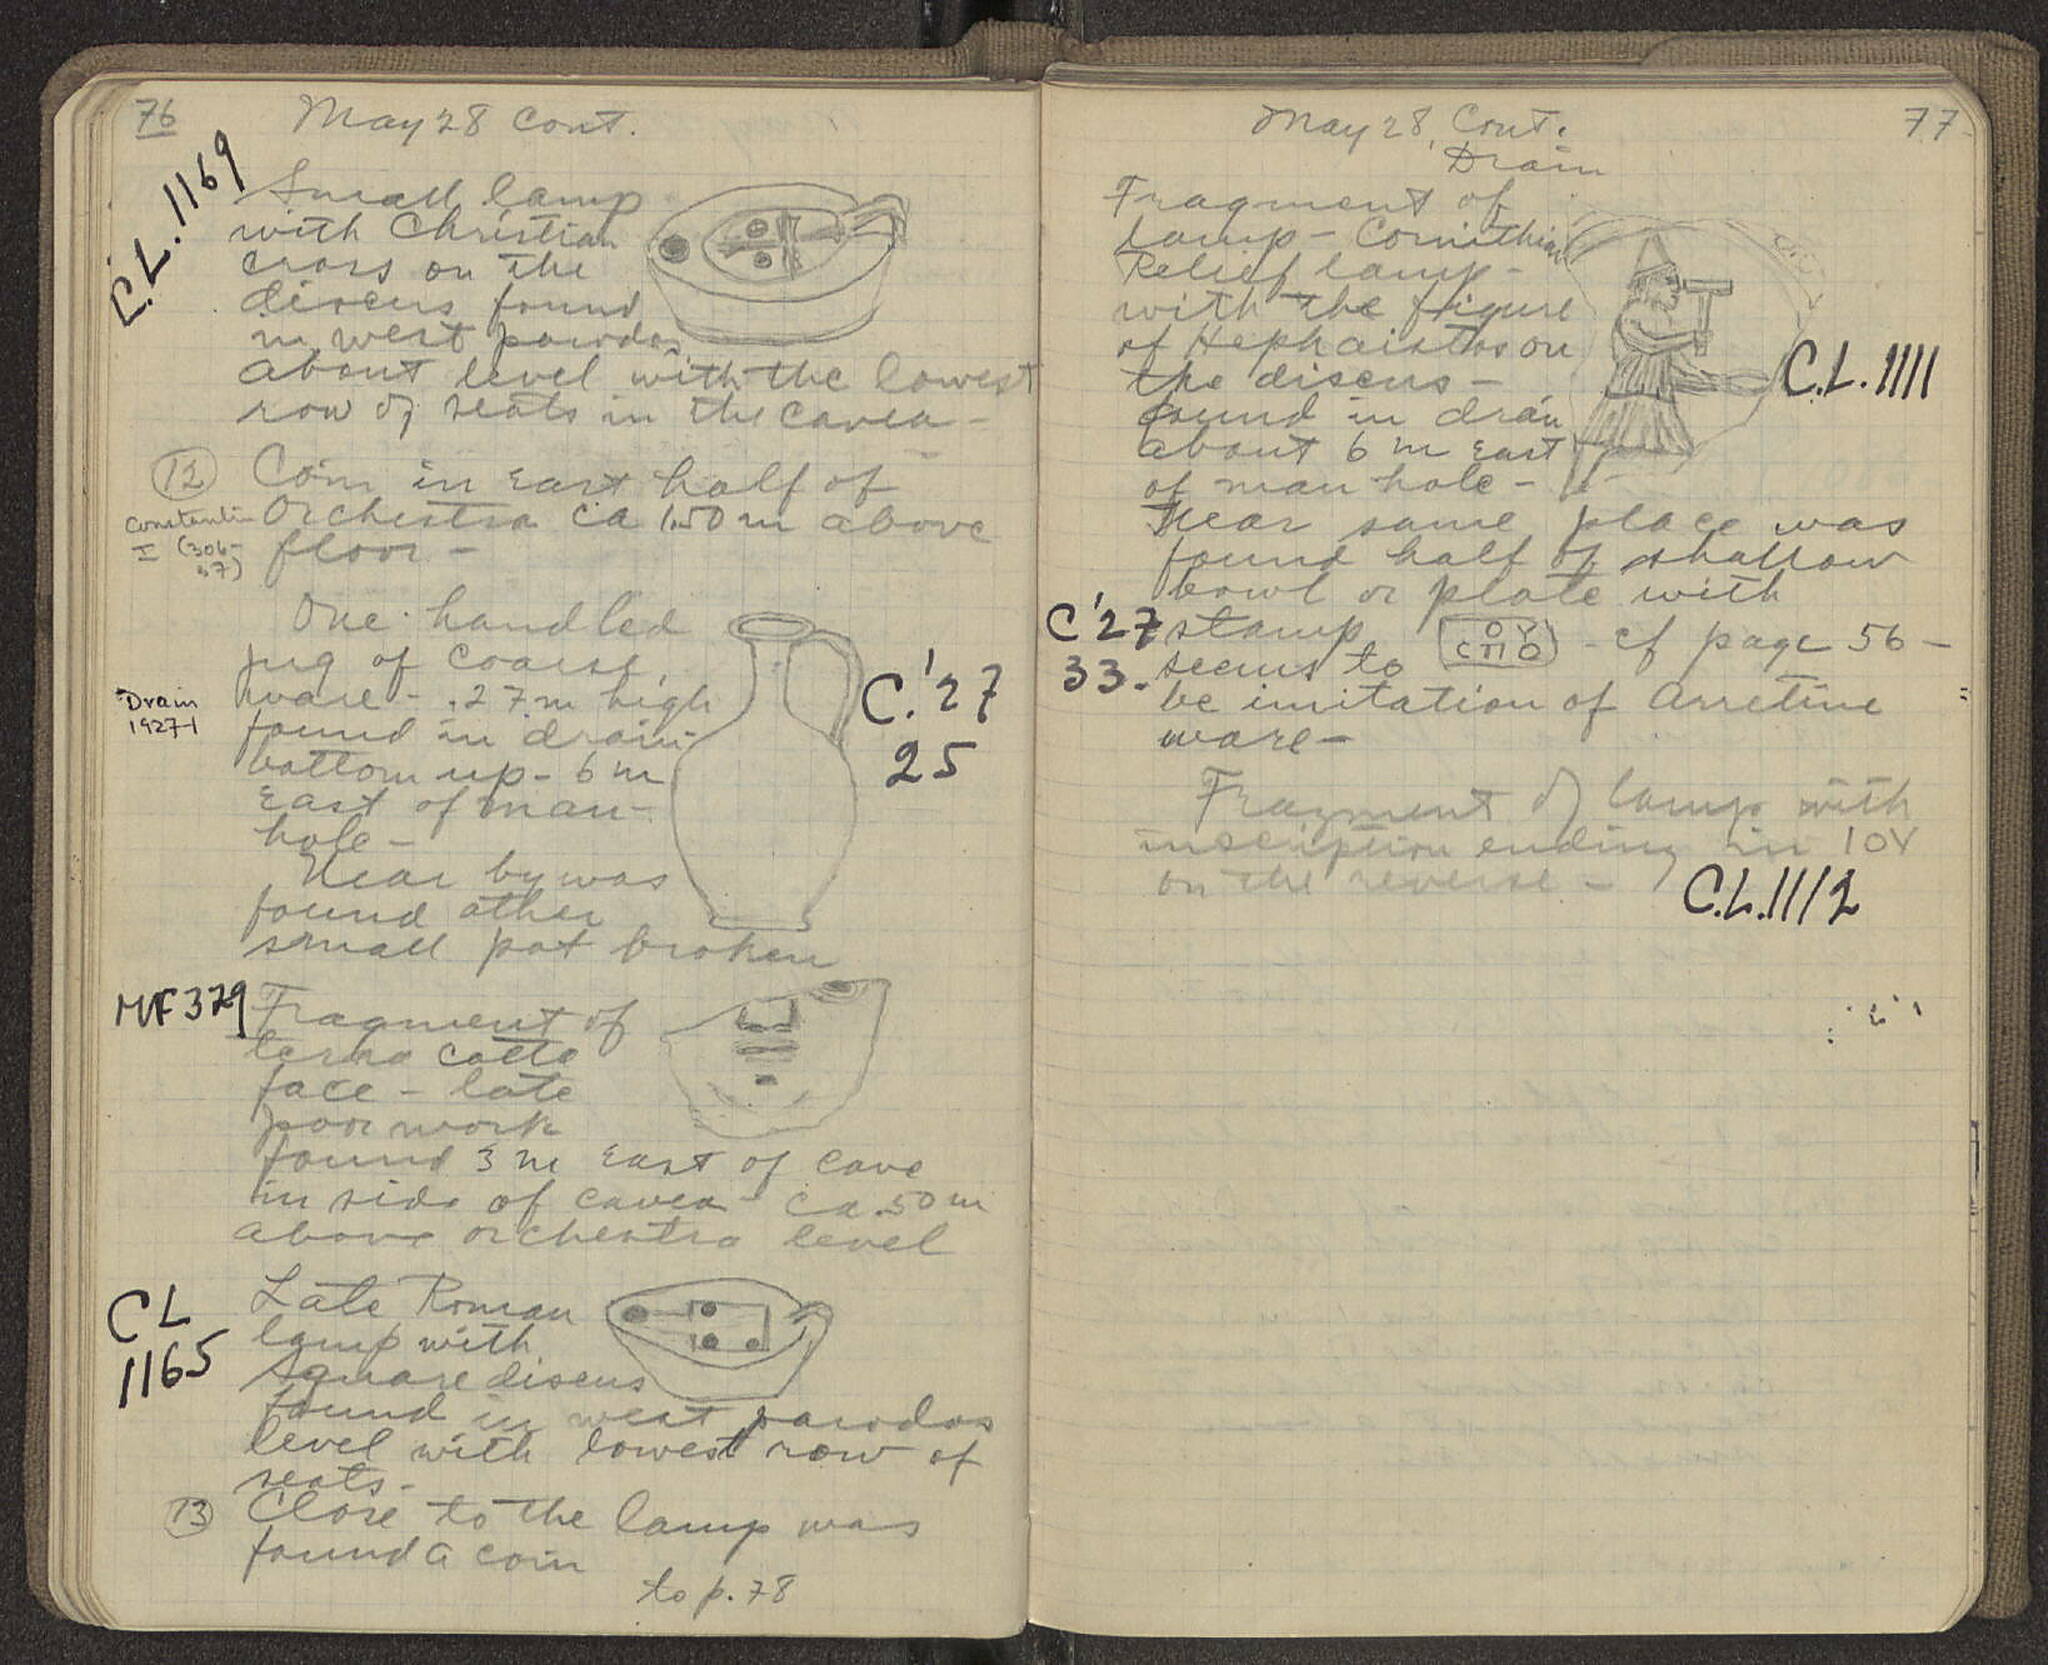 76
May 28 Cont.
C.L. 1169
Small lamp
with Christian
cross on the
discus found
in west parodos
about level with the lowest
row of seats in the cavea -
12 Coin in East half of
Orchestra ca 1.50 m above
floor -
Constantin
I (306-
37)
One handled
jug of coarse
ware - .27 m high
found in drain
bottom up - 6 m
East of man-
hole -
Drain
1927-1
C.'27
25
Near by was
found other
small pot broken
MF 379
Fragment of
terra cotta
face - late
poor work
found 3 m East of cave
in side of cavea - ca .50 m
above orchestra level
CL
1165
Late Roman
lamp with
square discus
found in west parodos
level with lowest row of
seats -
13 Close to the lamp was
found a coin
to p. 78
May 28, Cont.
77
Drain
Fragment of
lamp - Corinthian
Relief lamp -
with the figure
of Hephaistos on
the discus -
found in drain
about 6 m East
of man hole -
C.L. 1111
Near same place was
found half of shallow
bowl or plate with
C'27
33.
stamp OY CΠO - cf page 56 -
seems to
be imitation of Arretine
ware -
Fragment of lamp with
inscription ending in IOY
on the reverse -
C.L. 1112